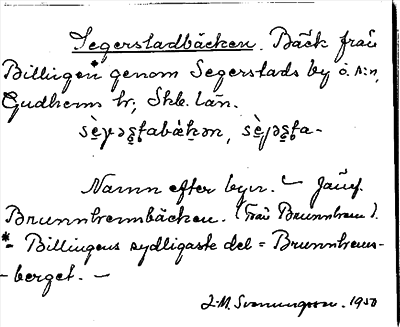 Segerstadbäcken. Bäck från
Billingen* genom Segerstads by o. s:n,
Gudhems hr, Skb. län.
Namn efter byn. — Jämf.
Brunnhemsbäcken. (Från Brunnhem).
*- Billingens sydligaste del = Brunnhems-
-berget. —
J.M. Svenungsson. 1950